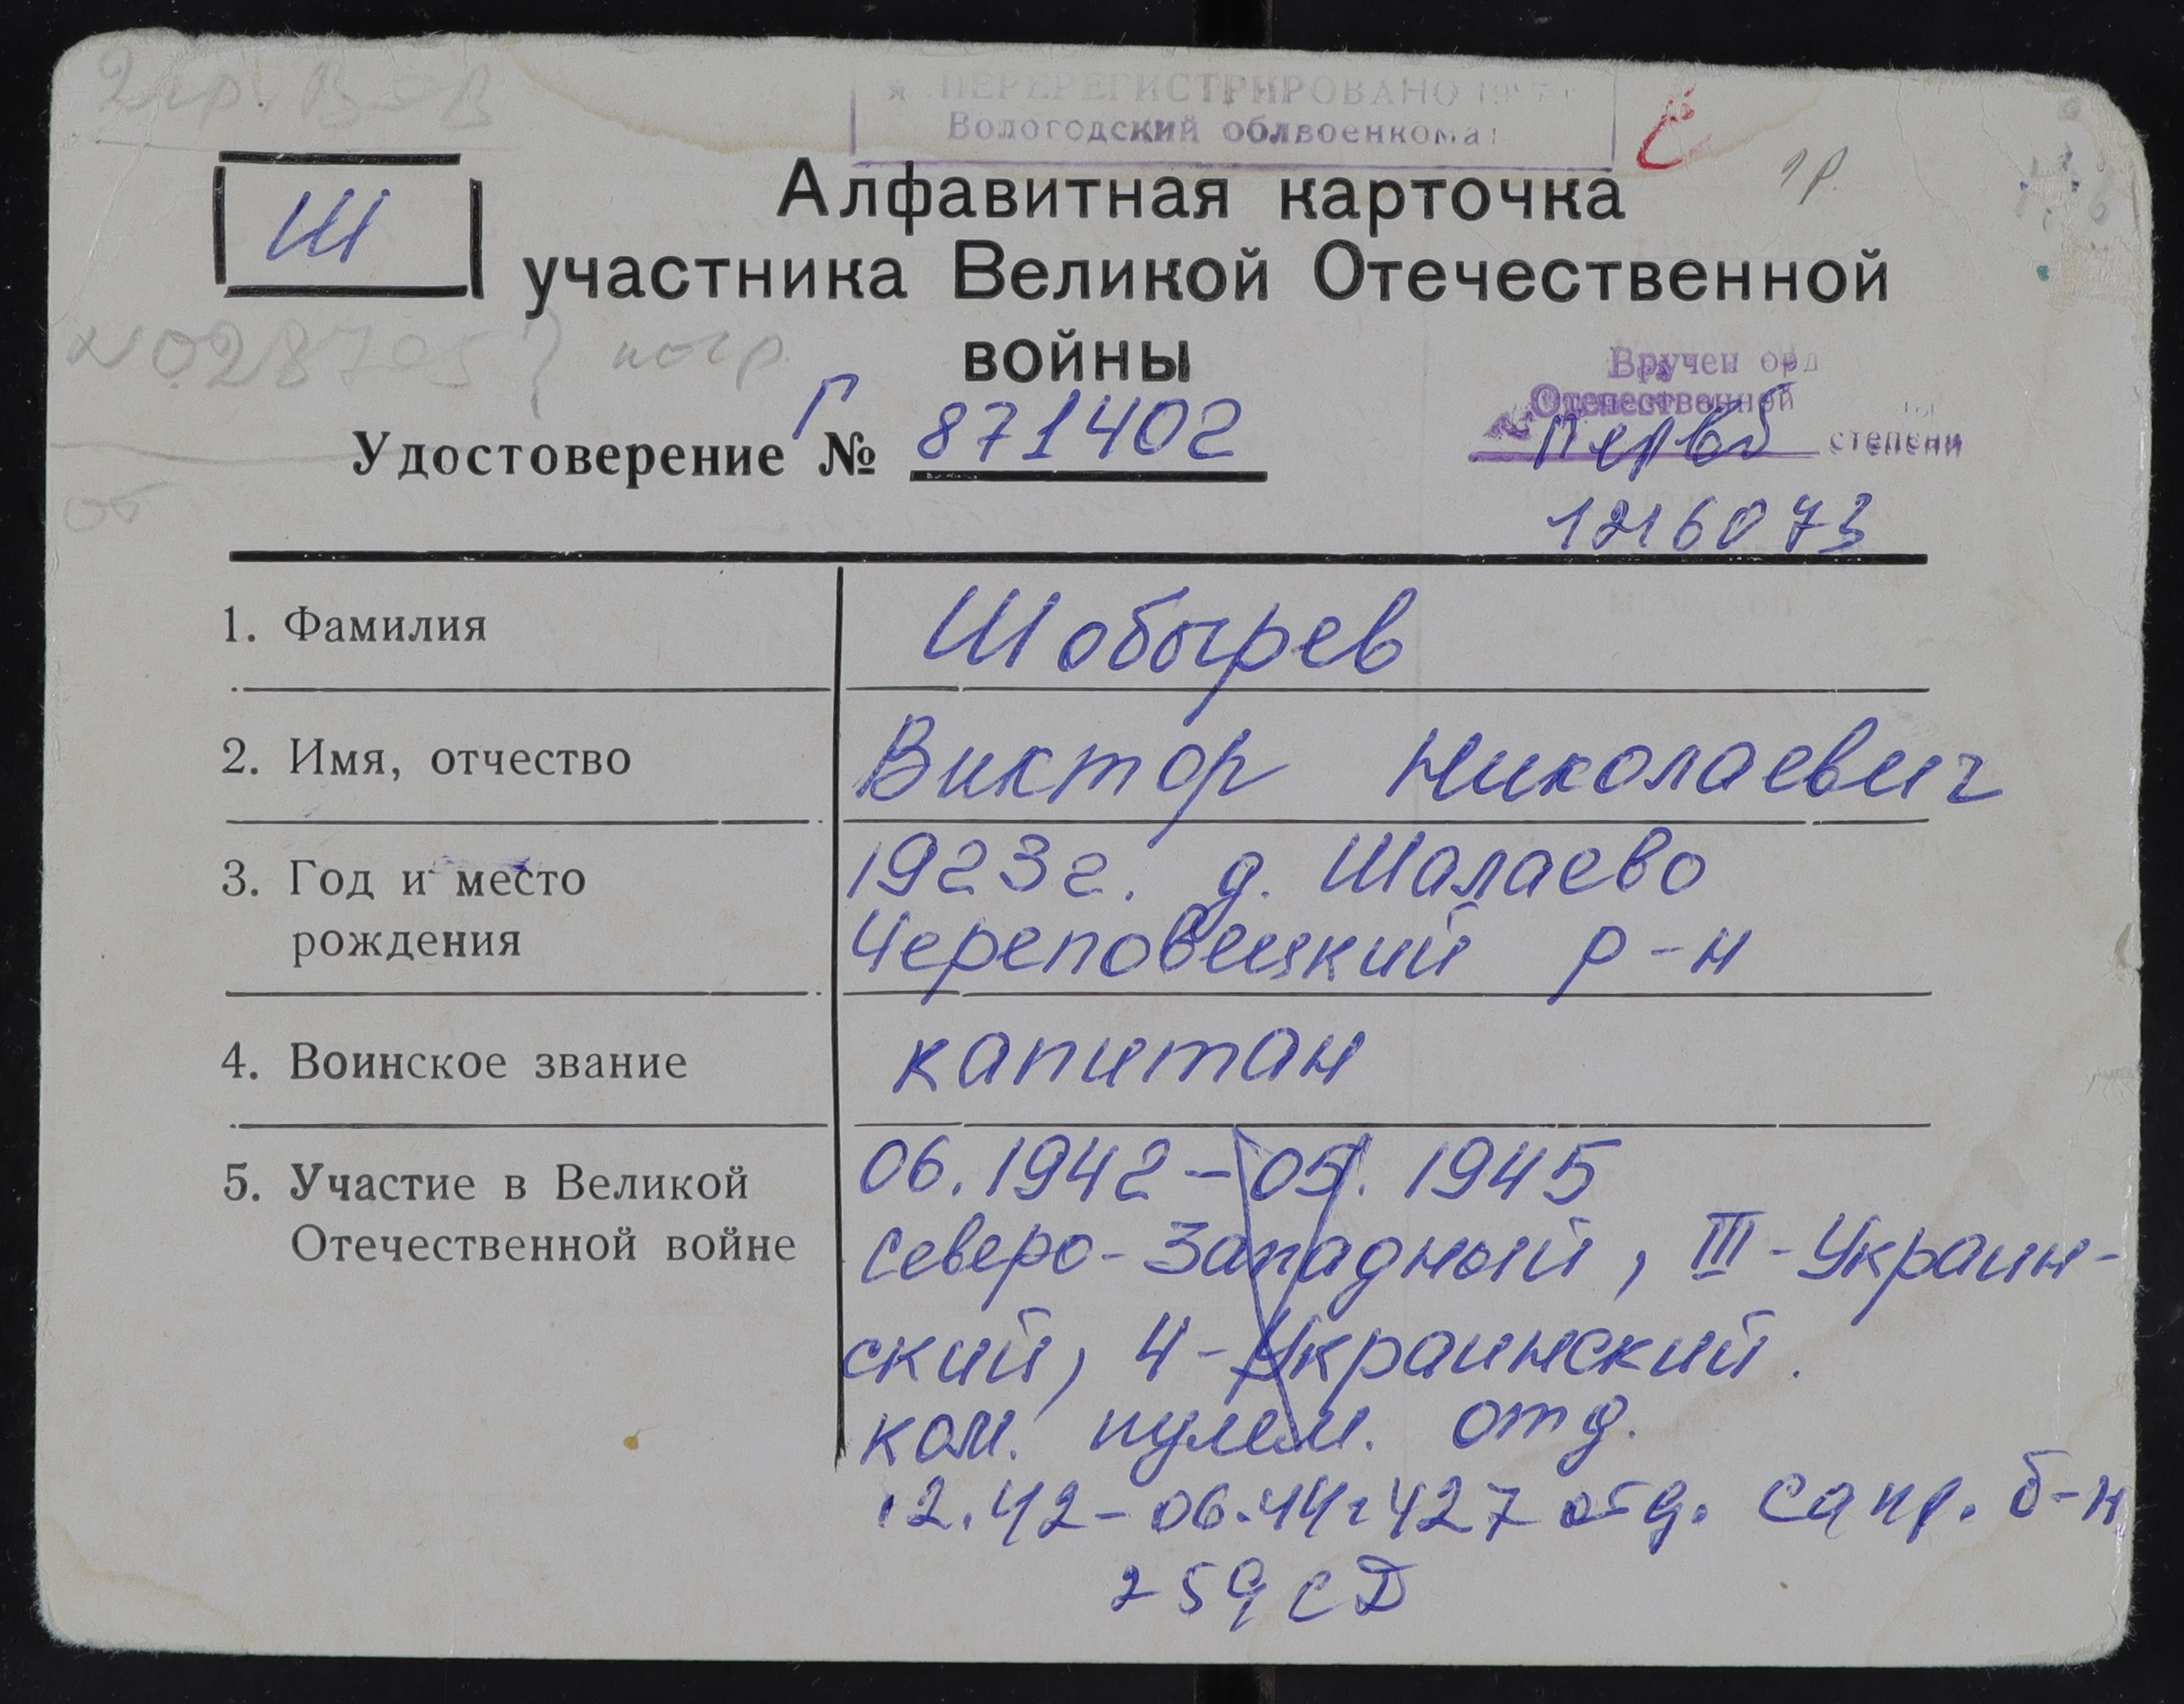 2 гр. ВОВ
ПЕРЕРЕГИСТРИРОВАНО
Вологодский облвоенкомат
Ш
Алфавитная карточка
участника Великой Отечественной
войны
1 р.
№028705
Удостоверение Г № 871402
Вручен орд
Отечественной
степени
1216073
от
1. Фамилия Шобырев
2. Имя, отчество Виктор Николаевич
3. Год и место 1923г. д. Шалаево
рождения Череповецкий р-н
4. Воинское звание капитан
5. Участие в Великой 06.1942-05.1945
Отечественной войне Северо-Западный, III-Украин-
ский, 4-Украинский.
ком. пулем. отд.
12.42-06.44г 427 отд. сапр. б-н
259 СД